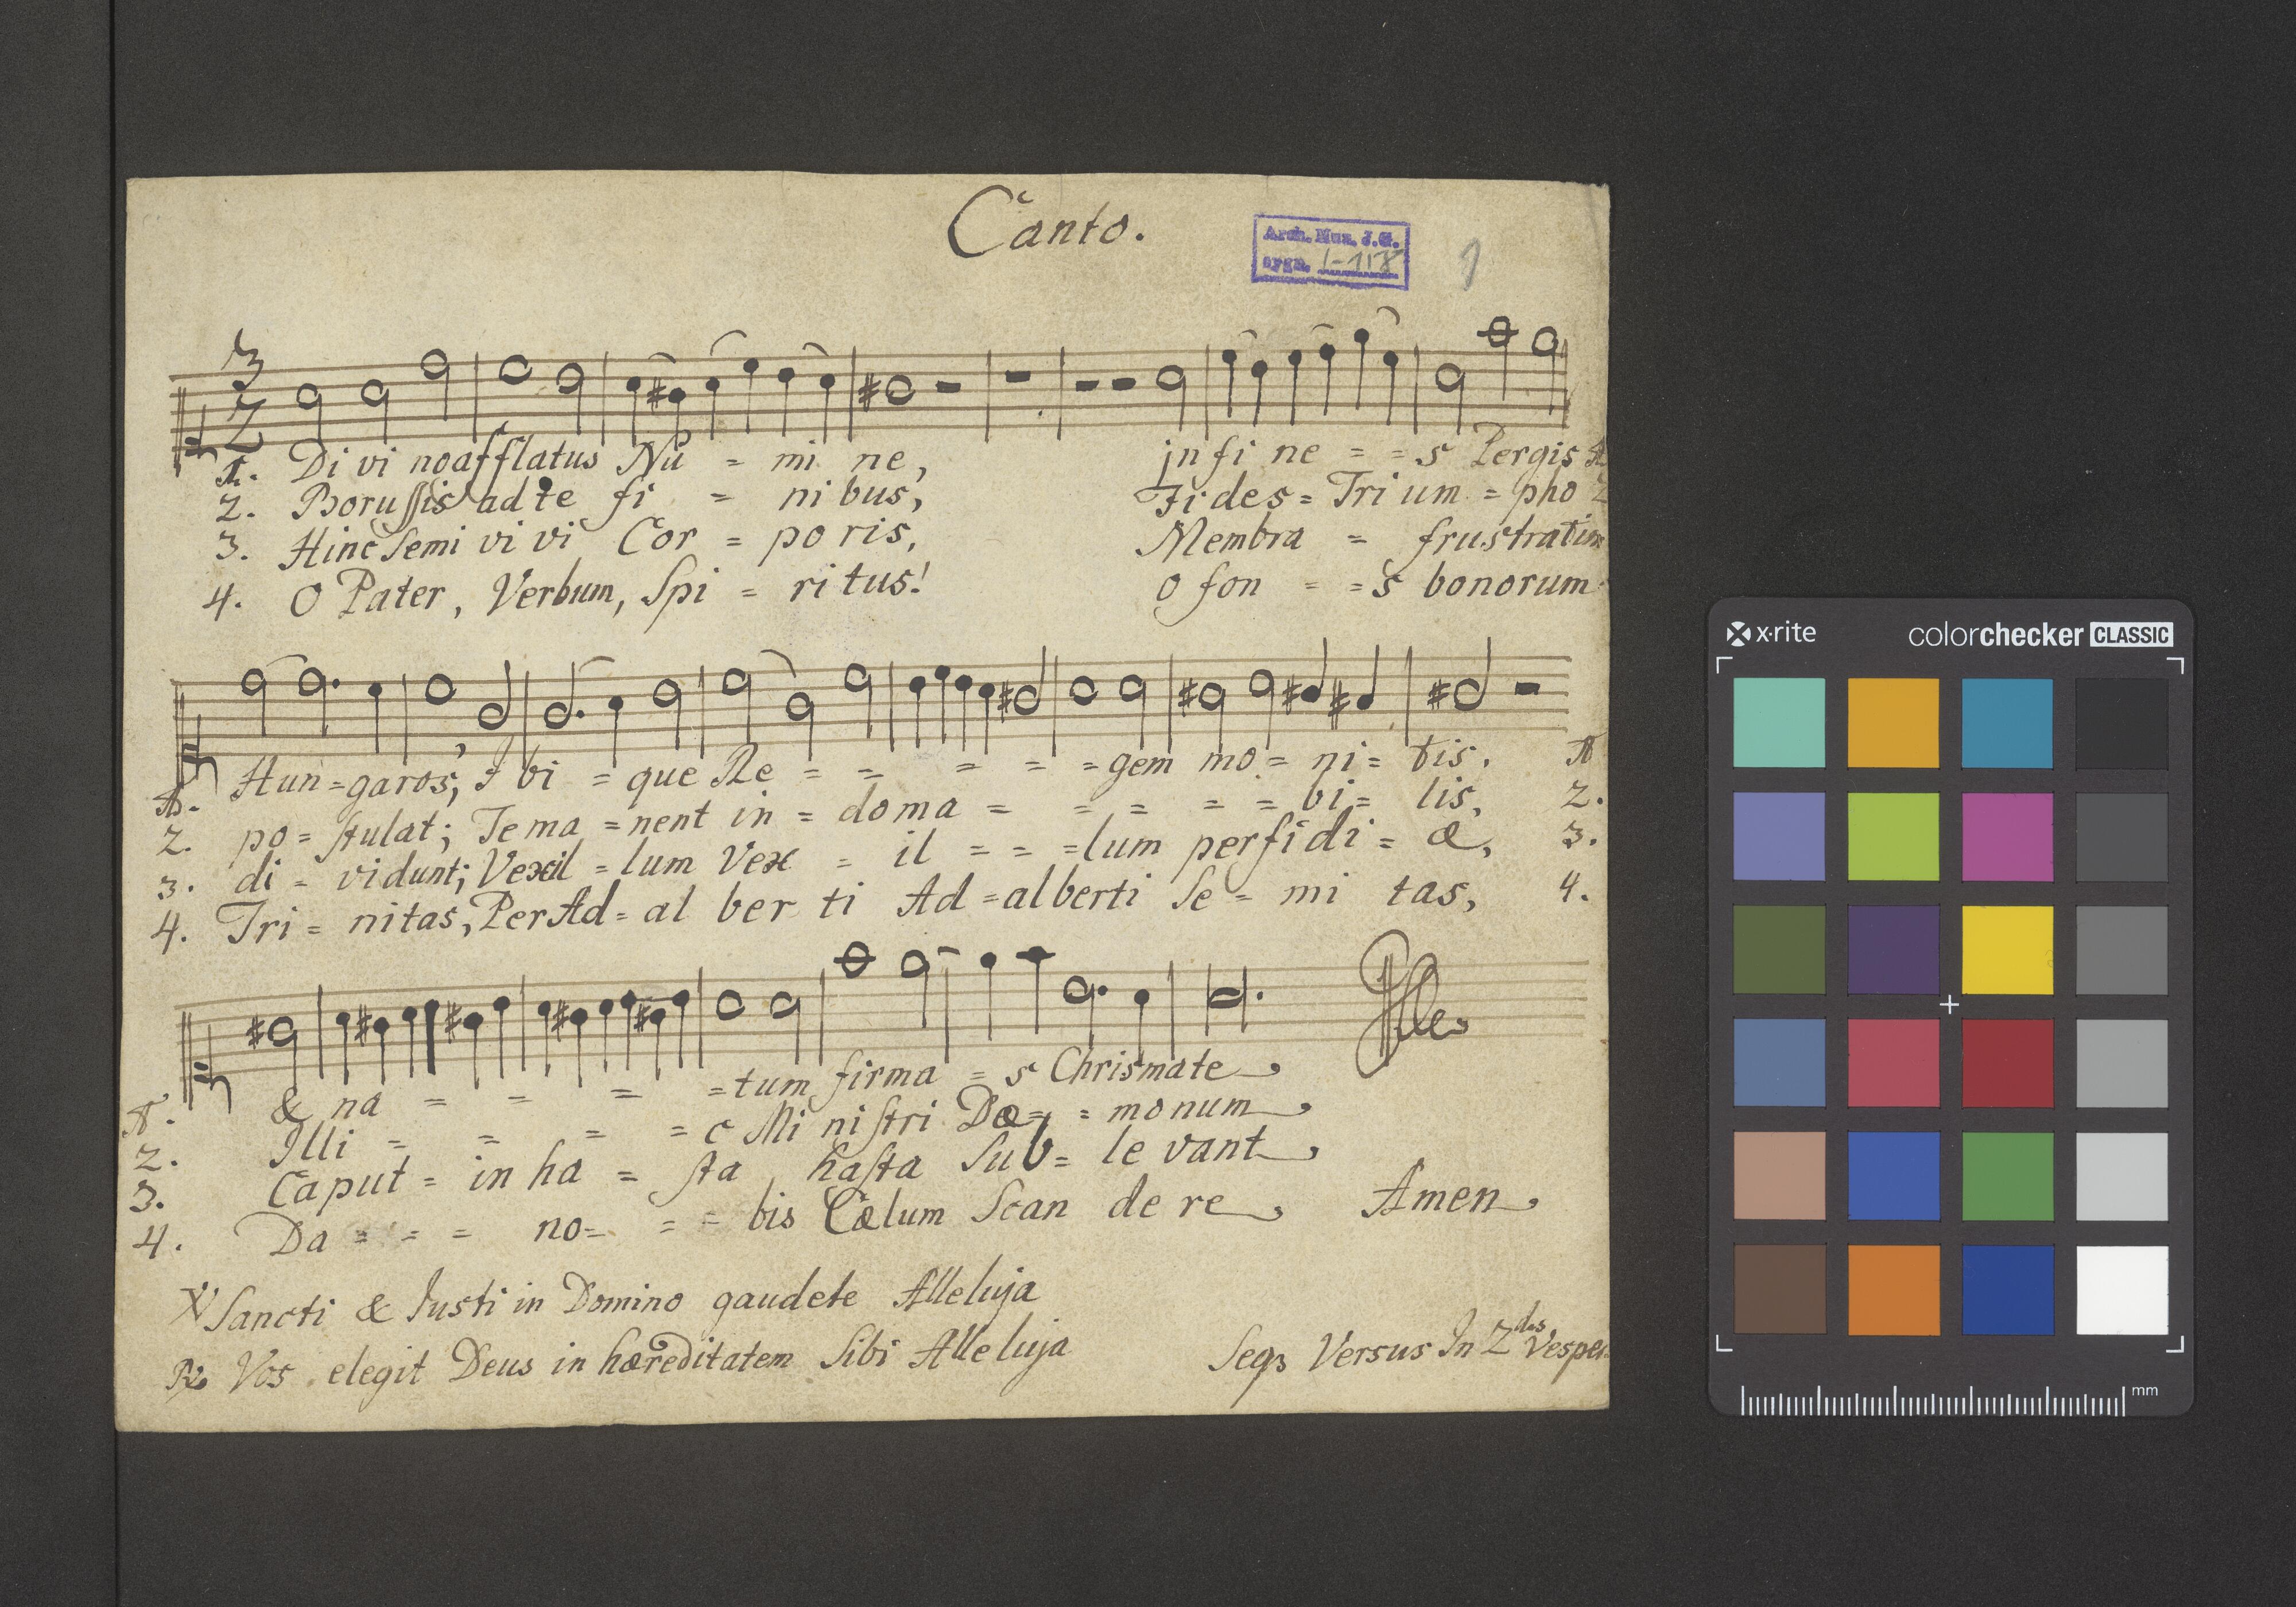 Canto.
Arch. Muz. J.G.
sygn. I-118
1
3
2
1. Di vi noafflatus Nu = mi ne, jn fi ne = = s Pergis
2. Borussis ad te fi = ni bus, Fides = Tri um = pho 2
3. Hinc Semi vi vi Cor = po ris, Membra = frustratim
4. O Pater, Verbum, Spi = ri tus! o fon = = s bonorum
1. Hun = garos; I bi = que Re = = = = = gem mo = ni = tis. 1
2. po = stulat; Te ma = nent in = do ma = = = = = bi = lis, 2.
3. di = vidunt; Vexil = lum Vex = il = = = lum perfidi = æ, 3.
4. Tri = nitas, Per Ad = al ber ti Ad = alberti Se = mi tas, 4.
1. & na = = = = tum firma = s Chrismate
2. Illi = = = = c Mi ni stri Dæ = = monum
3. Caput = in ha = sta hasta Sub = le vant
4. Da = = = no = = = bis Cælum Scan de re Amen
℣ Sancti & Justi in Domino gaudete Alleluja
℟ Vos elegit Deus in hæreditatem Sibi Alleluja Seqs Versus In 2das Vesper
x·rite colorchecker CLASSIC
mm